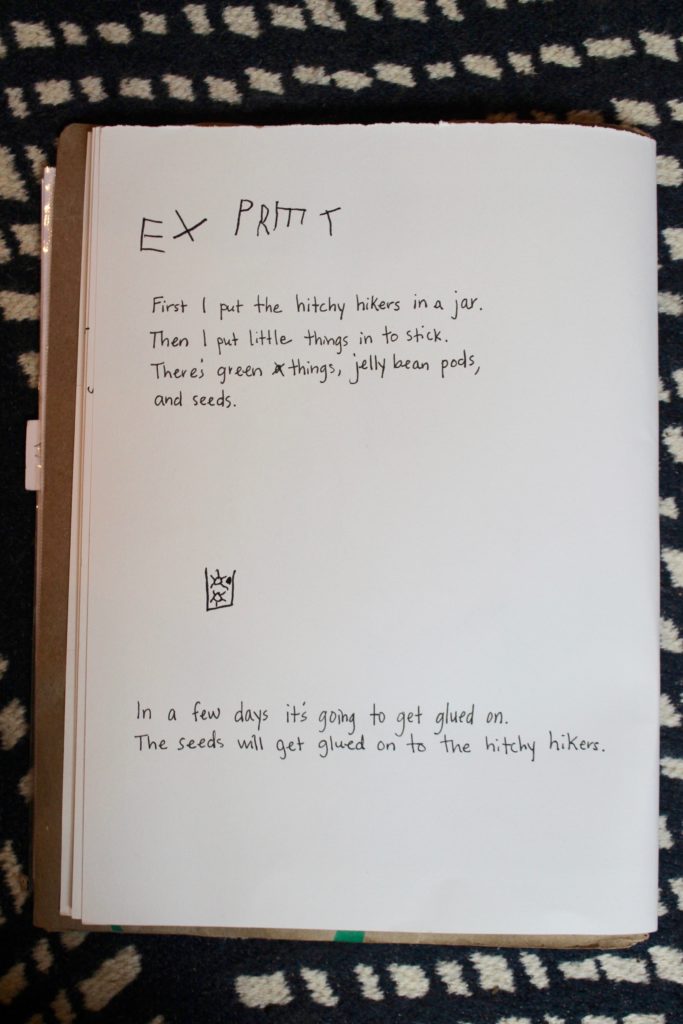 EX PREET
First I put the hitchy hikers in a jar.
Then I put little things in to stick.
There's green things, jelly bean pods,
and seeds.
In a few days it's going to get glued on.
The seeds will get glued on to the hitchy hikers.